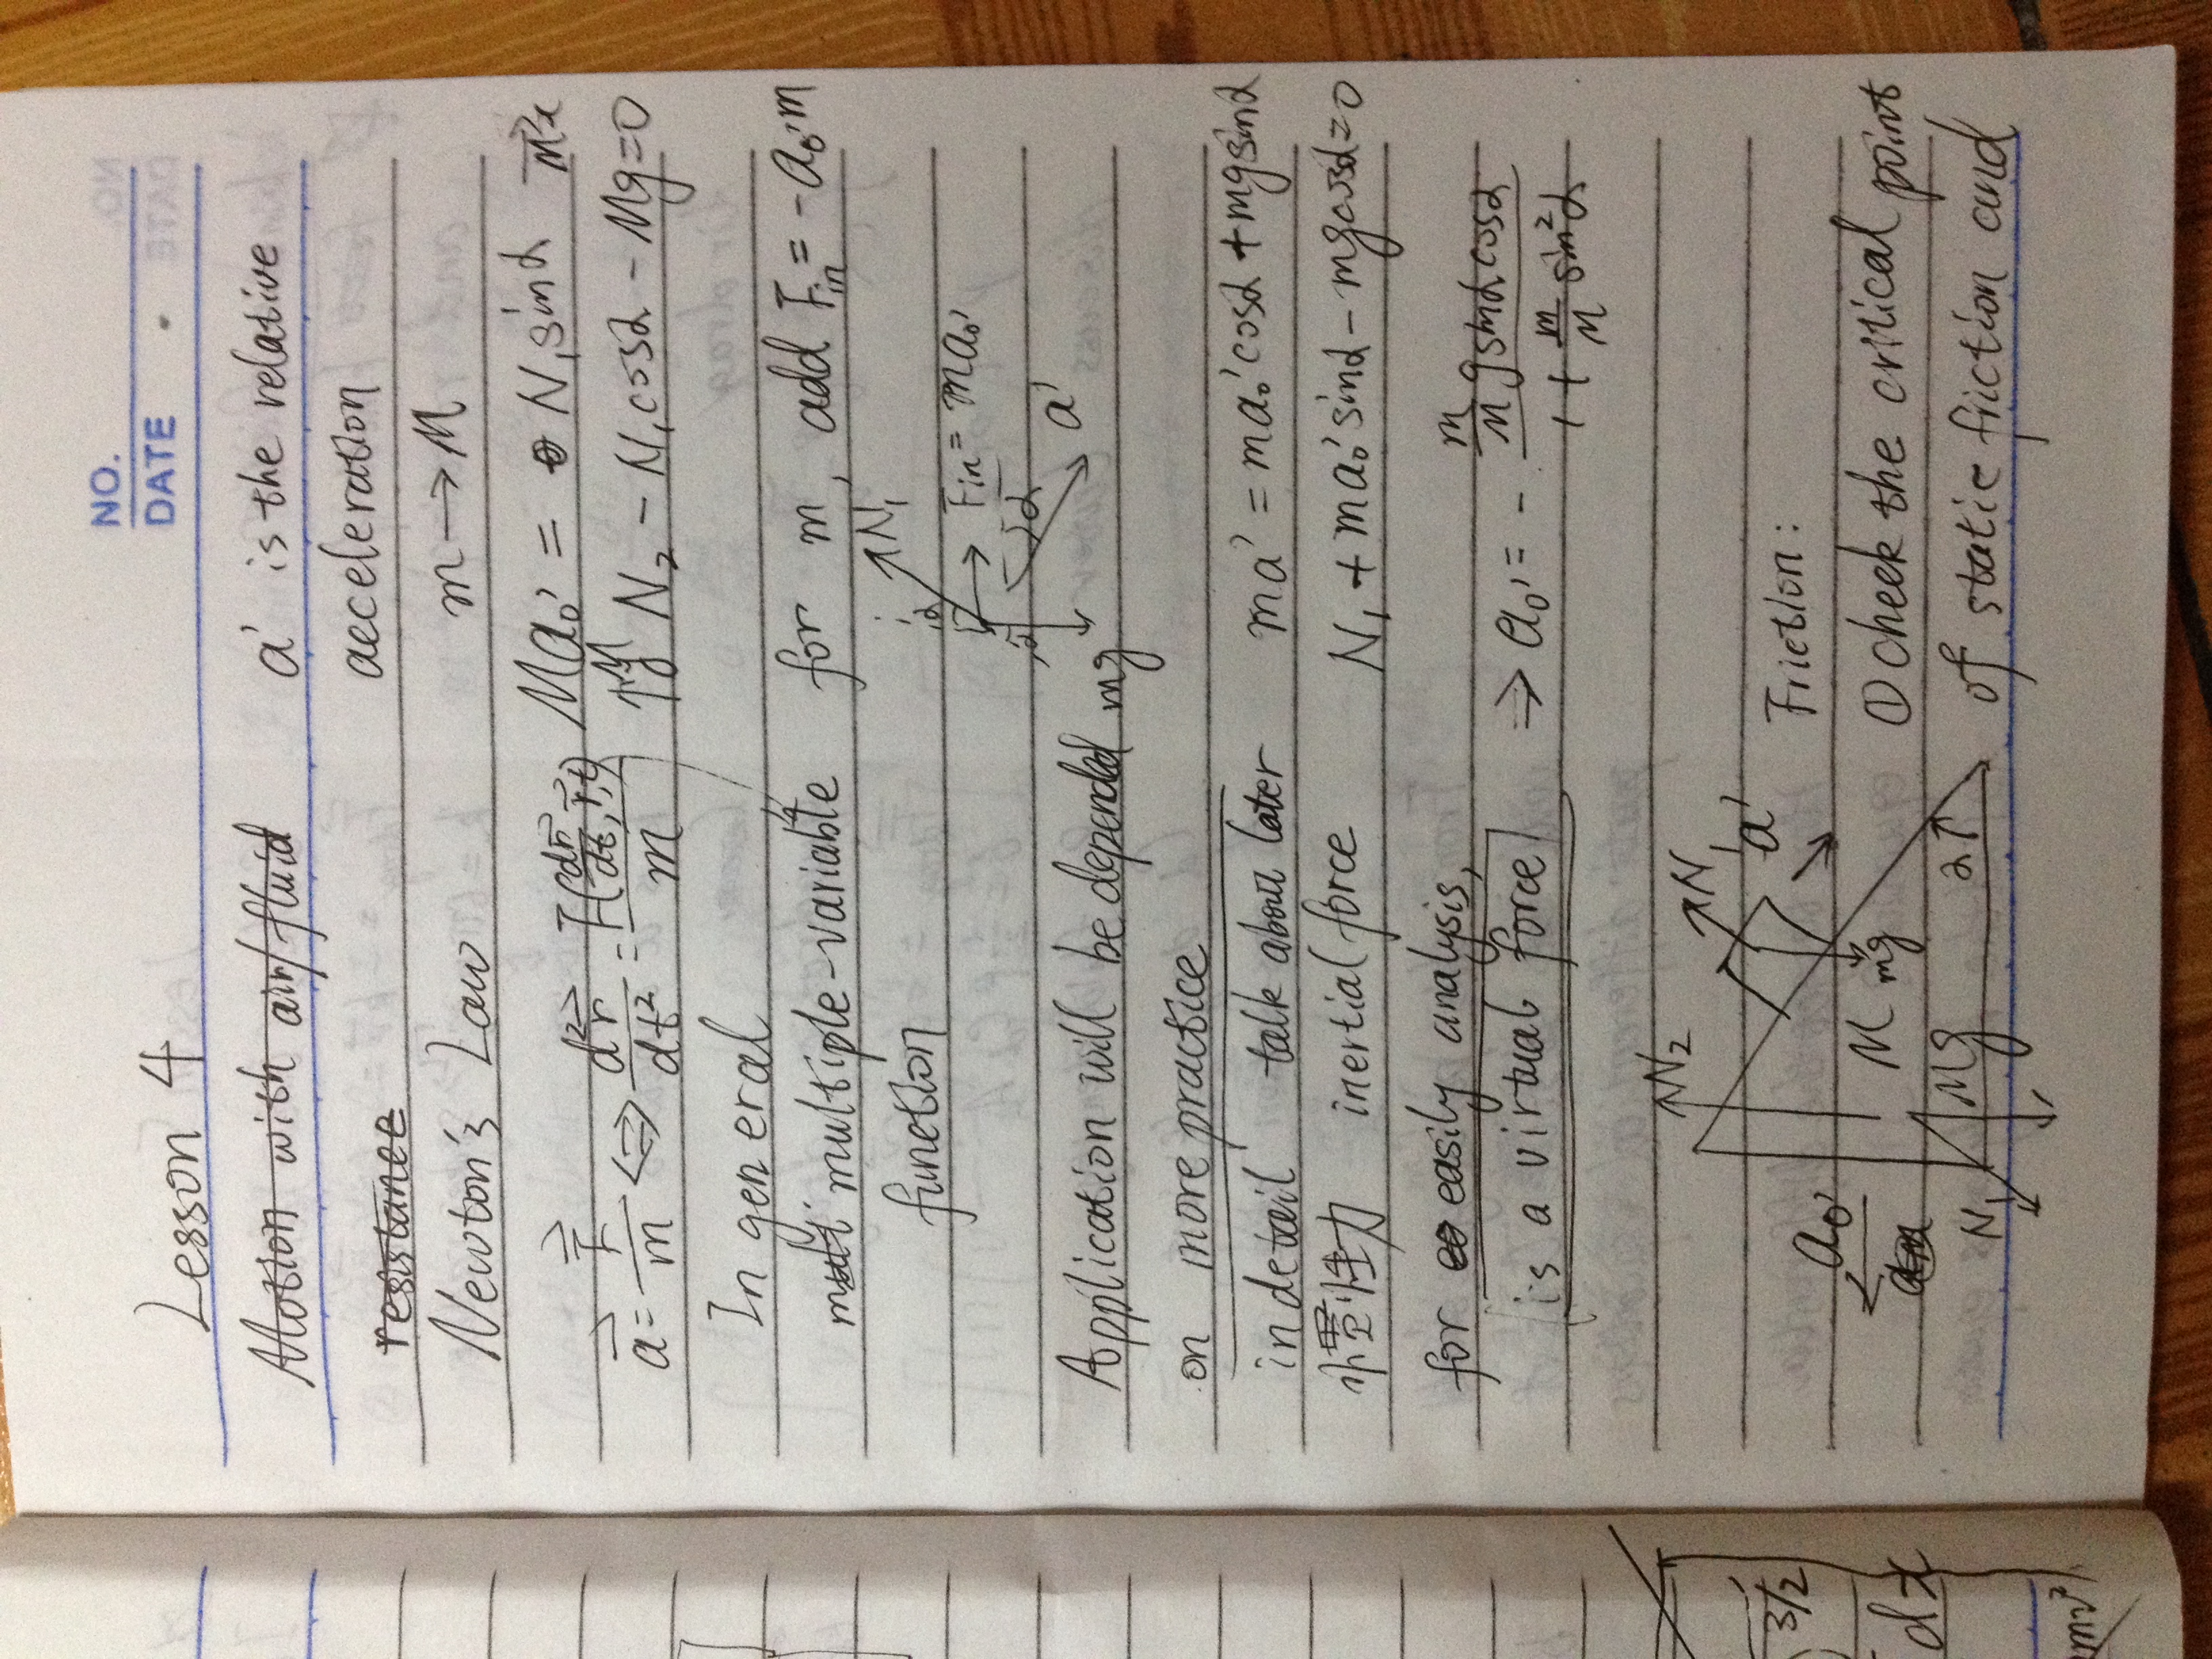 NO.
DATE
Lesson 4
Motion with air/fluid
resistance
Newton's Law
a⃗ = F⃗/m ⇔ d²r⃗/dt² = F⃗(dr⃗/dt, r⃗, t)/m
In general
multi multiple-variable
function
Application will be depended
on more practice
in detail talk about later
慣性力 inertial force
for easily analysis,
is a virtual force
N₂
N₁
a'
a₀'
M mg
N₁
Mg
α
a' is the relative
acceleration
m → M
Ma₀' = N₁sinα
N₂ - N₁cosα - Mg=0
for m, add F_in = -a₀'m
N₁
α
F_in = ma₀'
α
α
a'
mg
ma' = ma₀'cosα + mgsinα
N₁ + ma₀'sinα - mgcosα=0
⇒ a₀' = - (m/M gsinαcosα)/(1 + m/M sin²α)
Friction:
① check the critical point
of static friction and
3/2
dx
mv²